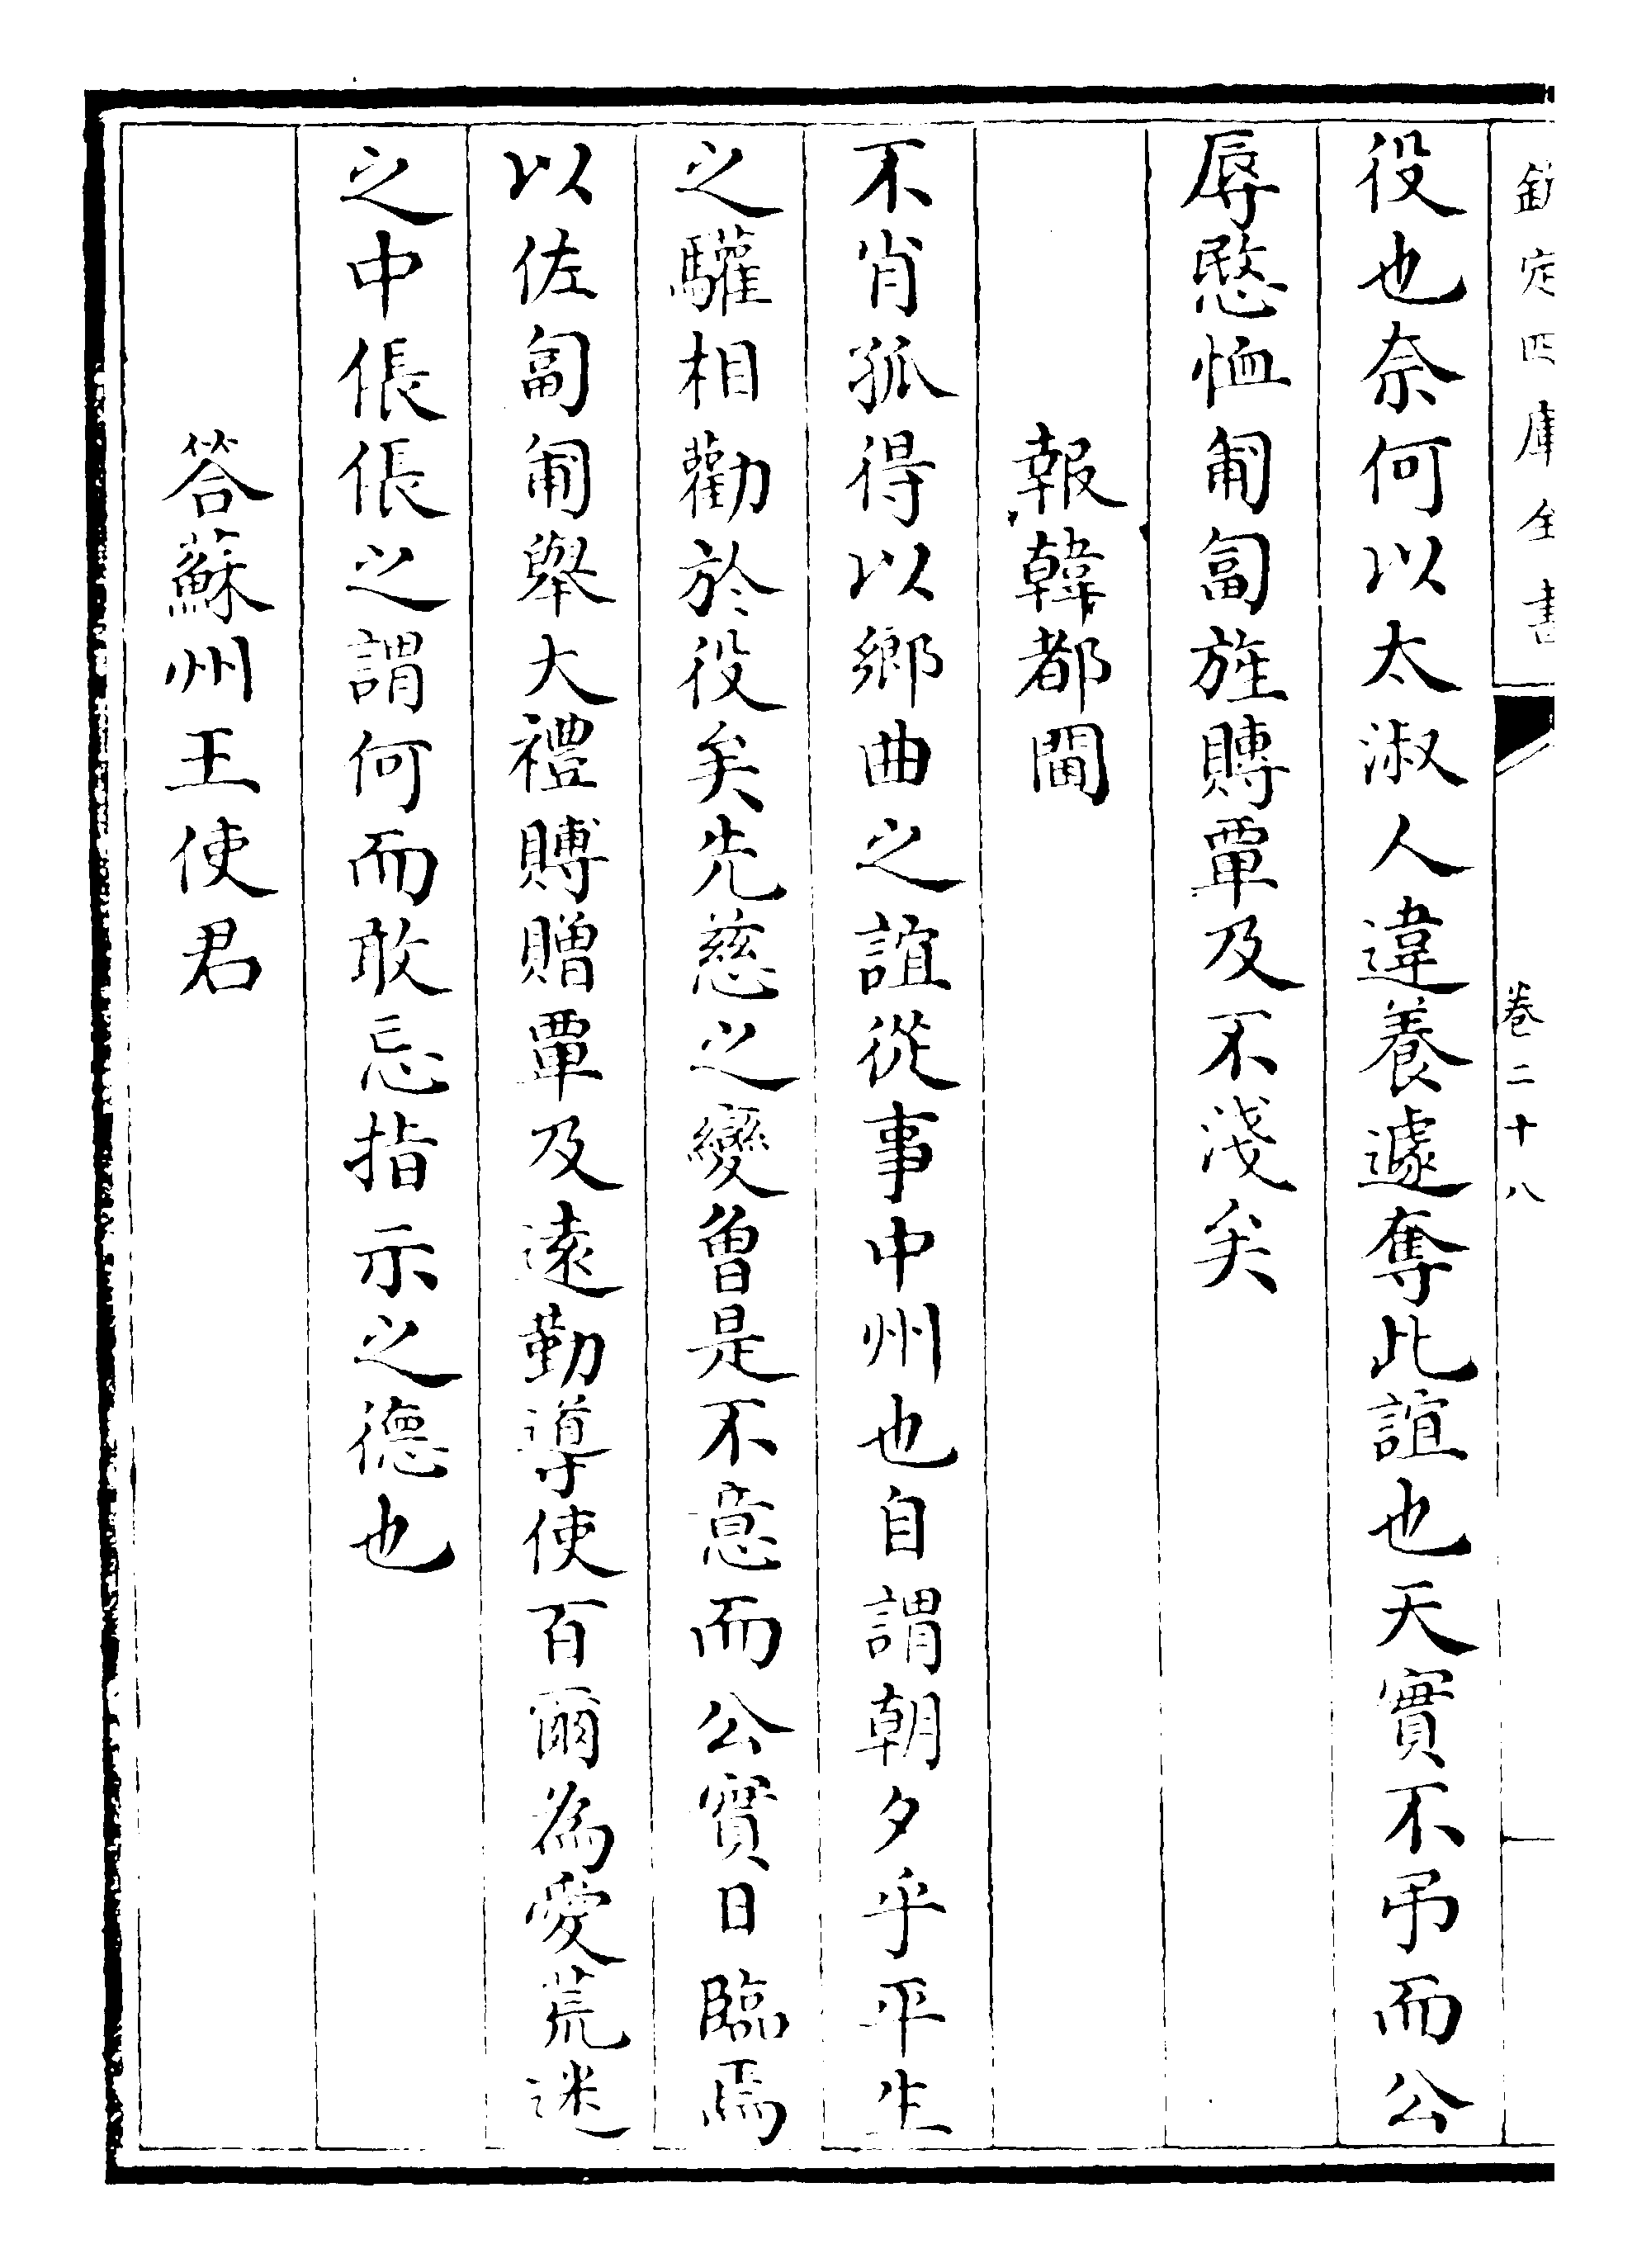 欽定四庫全書
卷二十八
役也奈何以太淑人違養遽奪此誼也天實不弔而公
辱愍恤匍匐旌賻覃及不淺矣
報韓都閫
不肖孤得以鄉曲之誼從事中州也自謂朝夕乎平生
之驩相勸於役矣先慈之變曾是不意而公實日臨焉
以佐匐匍舉大禮賻贈覃及遠勤導使百爾為愛荒迷
之中倀倀之謂何而敢忘指示之德也
答蘇州王使君